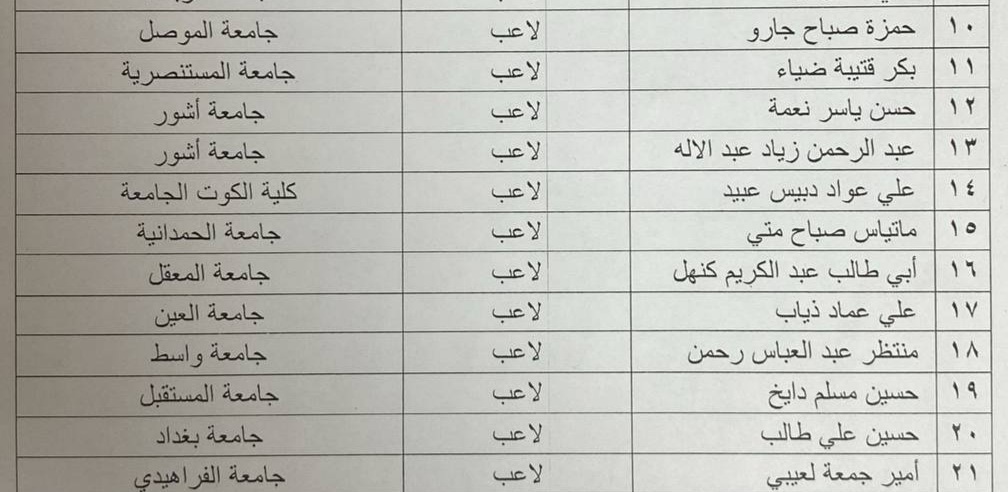 ١٠ حمزة صباح جارو لاعب جامعة الموصل
١١ بكر قتيبة ضياء لاعب جامعة المستنصرية
١٢ حسن ياسر نعمة لاعب جامعة أشور
١٣ عبد الرحمن زياد عبد الاله لاعب جامعة أشور
١٤ علي عواد دبيس عبيد لاعب كلية الكوت الجامعة
١٥ ماتياس صباح متي لاعب جامعة الحمدانية
١٦ أبي طالب عبد الكريم كنهل لاعب جامعة المعقل
١٧ علي عماد ذياب لاعب جامعة العين
١٨ منتظر عبد العباس رحمن لاعب جامعة واسط
١٩ حسين مسلم دايخ لاعب جامعة المستقبل
٢٠ حسين علي طالب لاعب جامعة بغداد
٢١ أمير جمعة لعيبي لاعب جامعة الفراهيدي